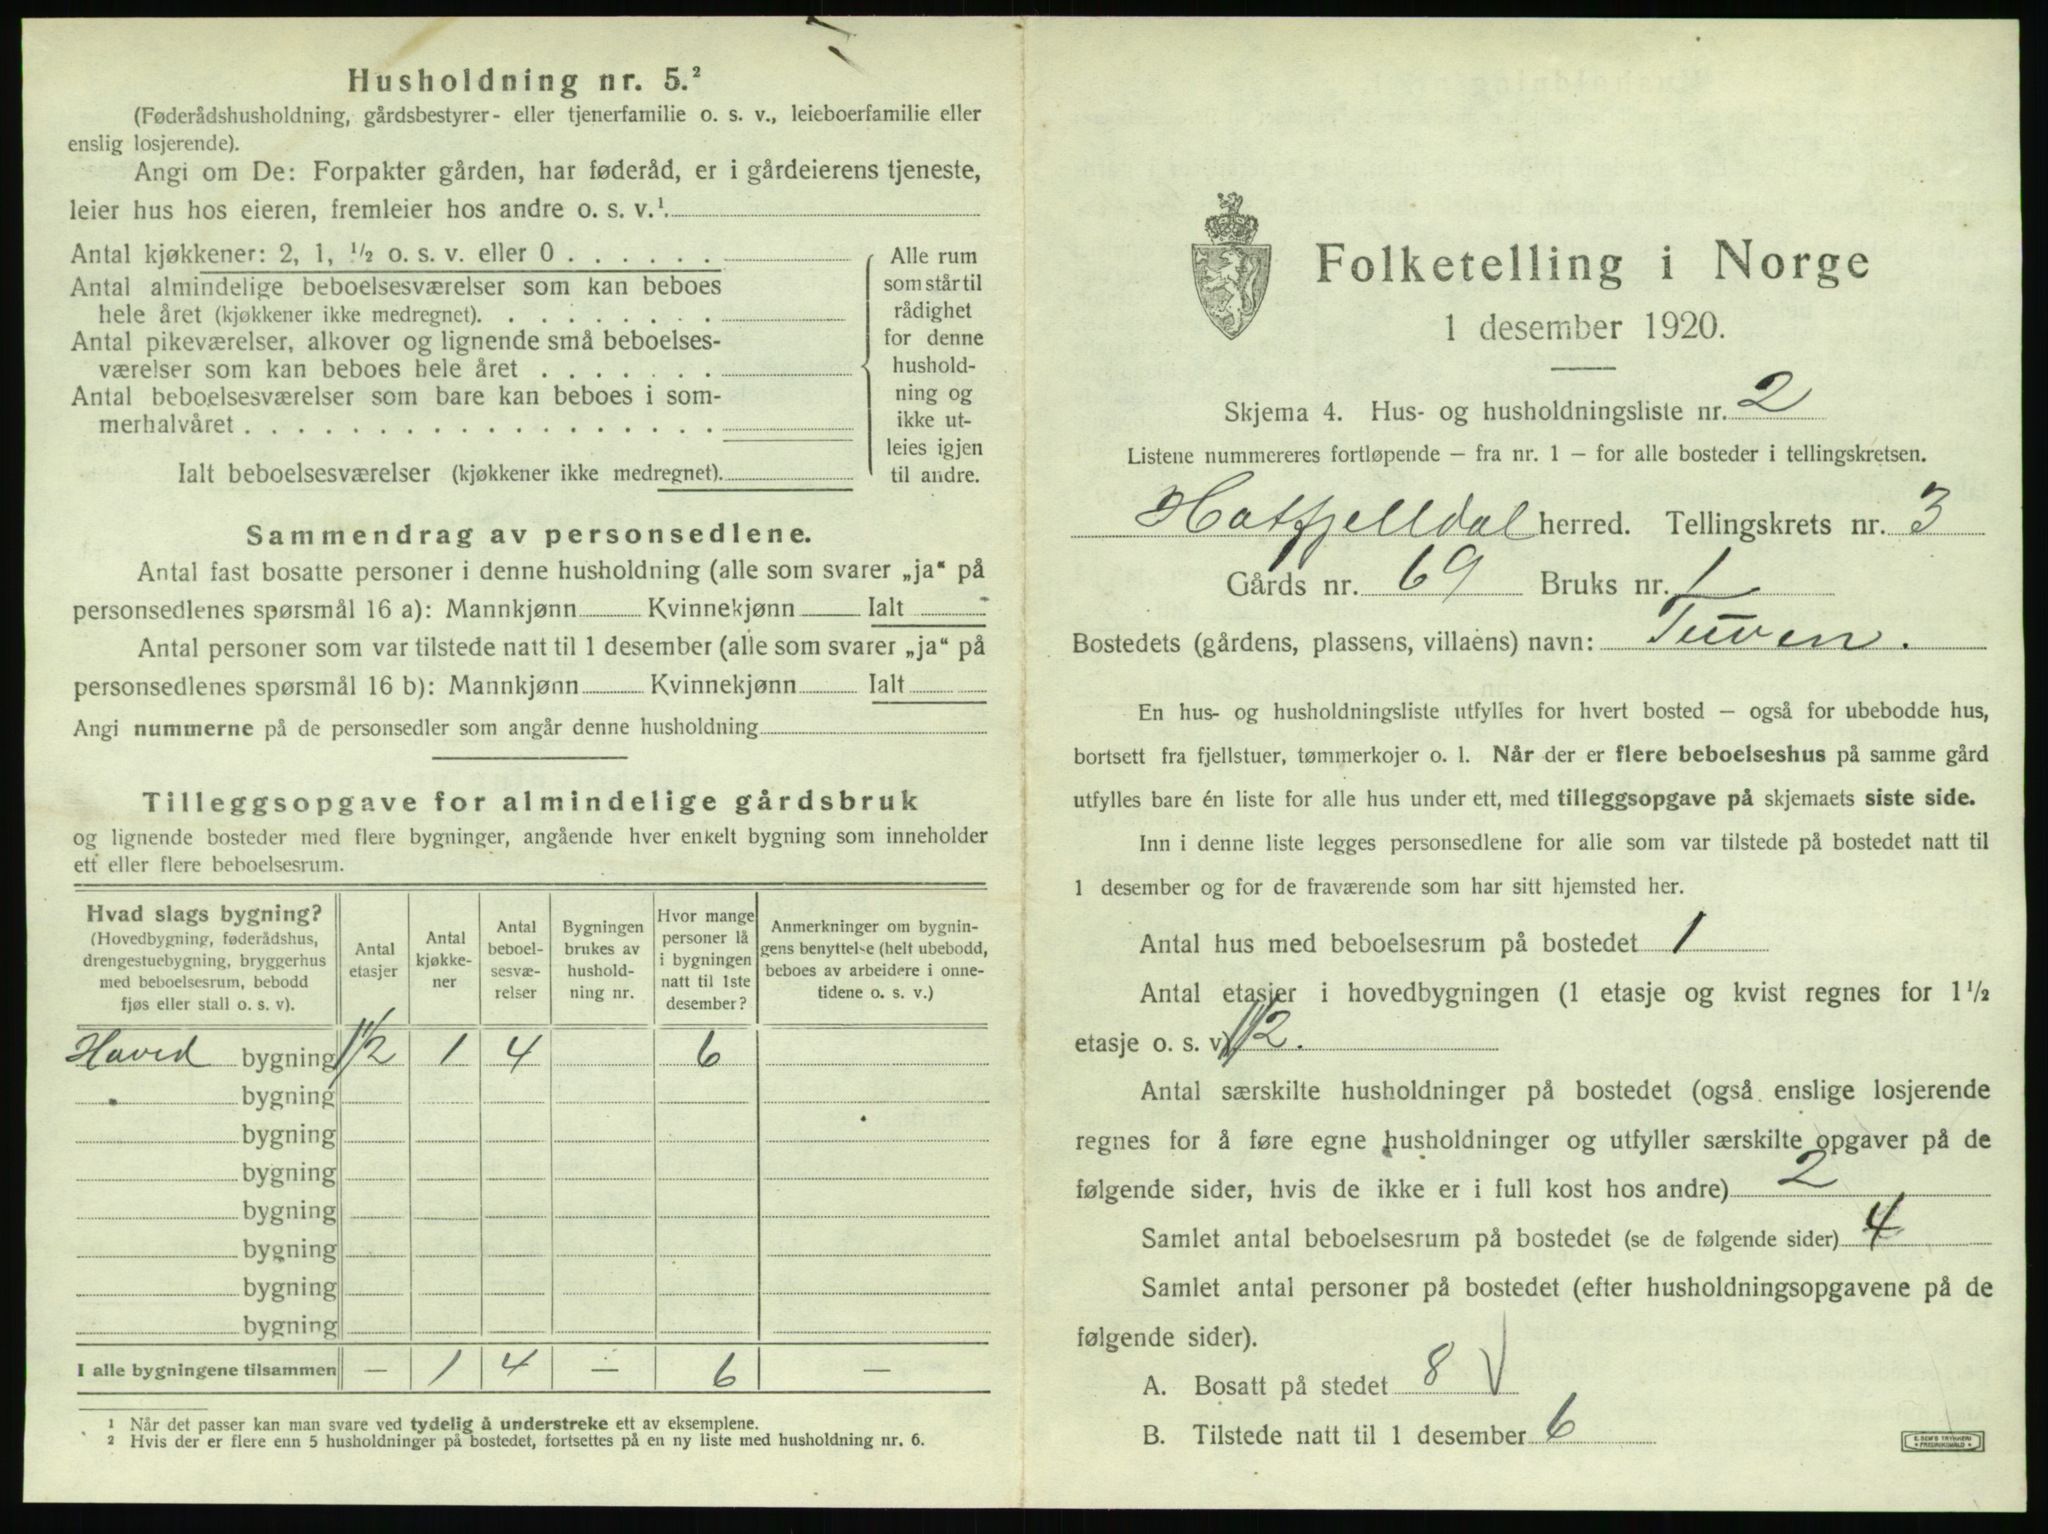 Husholdning nr. 5.²
(Føderådshusholdning, gårdsbestyrer- eller tjenerfamilie o. s. v., leieboerfamilie eller
enslig losjerende).
Angi om De: Forpakter gården, har føderåd, er i gårdeierens tjeneste,
leier hus hos eieren, fremleier hos andre o. s. v.¹.
Antal kjøkkener: 2, 1, ½ o. s. v. eller 0 . . . . . .
Antal almindelige beboelsesværelser som kan beboes
hele året (kjøkkener ikke medregnet). . . . . . . . .
Antal pikeværelser, alkover og lignende små beboelses-
værelser som kan beboes hele året . . . . . . .
Antal beboelsesværelser som bare kan beboes i som-
merhalvåret . . . . . . . . . . . . . . . . . .
Ialt beboelsesværelser (kjøkkener ikke medregnet).
Alle rum
som står til
rådighet
for denne
hushold-
ning og
ikke ut-
leies igjen
til andre.
Sammendrag av personsedlene.
Antal fast bosatte personer i denne husholdning (alle som svarer „ja“ på
personsedlenes spørsmål 16 a): Mannkjønn Kvinnekjønn Ialt
Antal personer som var tilstede natt til 1 desember (alle som svarer „ja“ på
personsedlenes spørsmål 16 b): Mannkjønn Kvinnekjønn Ialt
Angi nummerne på de personsedler som angår denne husholdning
Tilleggsopgave for almindelige gårdsbruk
og lignende bosteder med flere bygninger, angående hver enkelt bygning som inneholder
ett eller flere beboelsesrum.
Hvad slags bygning?
(Hovedbygning, føderådshus,
drengestuebygning, bryggerhus
med beboelsesrum, bebodd
fjøs eller stall o. s. v).
Antal
etasjer
Antal
kjøkke-
ner
Antal
beboel-
sesvæ-
relser
Bygningen
brukes av
hushold-
ning nr.
Hvor mange
personer lå
i bygningen
natt til 1ste
desember?
Anmerkninger om bygnin-
gens benyttelse (helt ubebodd,
beboes av arbeidere i onne-
tidene o. s. v.)
Hoved bygning 1½ 1 4 6
bygning
bygning
bygning
bygning
bygning
bygning
bygning
I alle bygningene tilsammen — 1 4 — 6 —
¹ Når det passer kan man svare ved tydelig å understreke ett av eksemplene.
² Hvis der er flere enn 5 husholdninger på bostedet, fortsettes på en ny liste med husholdning nr. 6.
Folketelling i Norge
1 desember 1920.
Skjema 4. Hus- og husholdningsliste nr. 2
Listene nummereres fortløpende – fra nr. 1 – for alle bosteder i tellingskretsen.
Hatfjelldal herred. Tellingskrets nr. 3
Gårds nr. 69 Bruks nr. 1
Bostedets (gårdens, plassens, villaens) navn: Tuven.
En hus- og husholdningsliste utfylles for hvert bosted – også for ubebodde hus,
bortsett fra fjellstuer, tømmerkojer o. l. Når der er flere beboelseshus på samme gård
utfylles bare én liste for alle hus under ett, med tilleggsopgave på skjemaets siste side.
Inn i denne liste legges personsedlene for alle som var tilstede på bostedet natt til
1 desember og for de fraværende som har sitt hjemsted her.
Antal hus med beboelsesrum på bostedet 1
Antal etasjer i hovedbygningen (1 etasje og kvist regnes for 1½
etasje o. s. v) 1½.
Antal særskilte husholdninger på bostedet (også enslige losjerende
regnes for å føre egne husholdninger og utfyller særskilte opgaver på de
følgende sider, hvis de ikke er i full kost hos andre) 2
Samlet antal beboelsesrum på bostedet (se de følgende sider) 4
Samlet antal personer på bostedet (efter husholdningsopgavene på de
følgende sider).
A. Bosatt på stedet 8 √
B. Tilstede natt til 1 desember 6
E. SEM'S TRYKKERI
• FREDRIKSHALD •